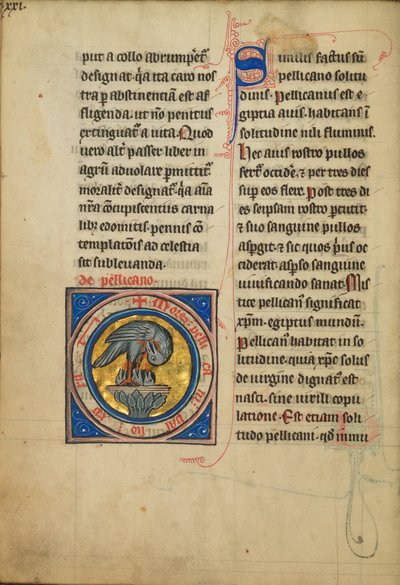 xxi.
put a collo abrumpet᷑
designat. q̃a ita caro nos
tra p abstinentiam est af
fligenda. ut nō penitus
extinguat᷑ a uita. Quod
uero alt᷑ passer liber in
agrū aduolare ꝑmittit᷑.
moralit᷑ designat. q̃a aīa
nr̄a c̄cupiscentiis carna
lib; edomitis. pennis cō
templatōis ad celestia
sit subleuanda.
de pellicano.
Similis factus sū
pellicano solitu
dinis. Pellicanus est e
giptia auis. habitans ī
solitudine nili fluminis.
Hec auis rostro pullos
fert᷑ occide. ⁊ per tres dies
sup eos flere. Post tres di
es seipsam rostro ꝑcutit.
⁊ suo sanguine pullos
aspgit. ⁊ sic quos p̾us oc
ciderat. asp̄so sanguine
uiuificando sanat. Mis
tice pellican᷒ significat
xp̄m. egiptus mundū.
Pellican᷒ habitat in so
litudine. quia xp̄c solus
de uirgine dignat᷒ est
nasci. sine uirili copu
latione. Est etiam soli
tudo pellicani. qd̄ īmu